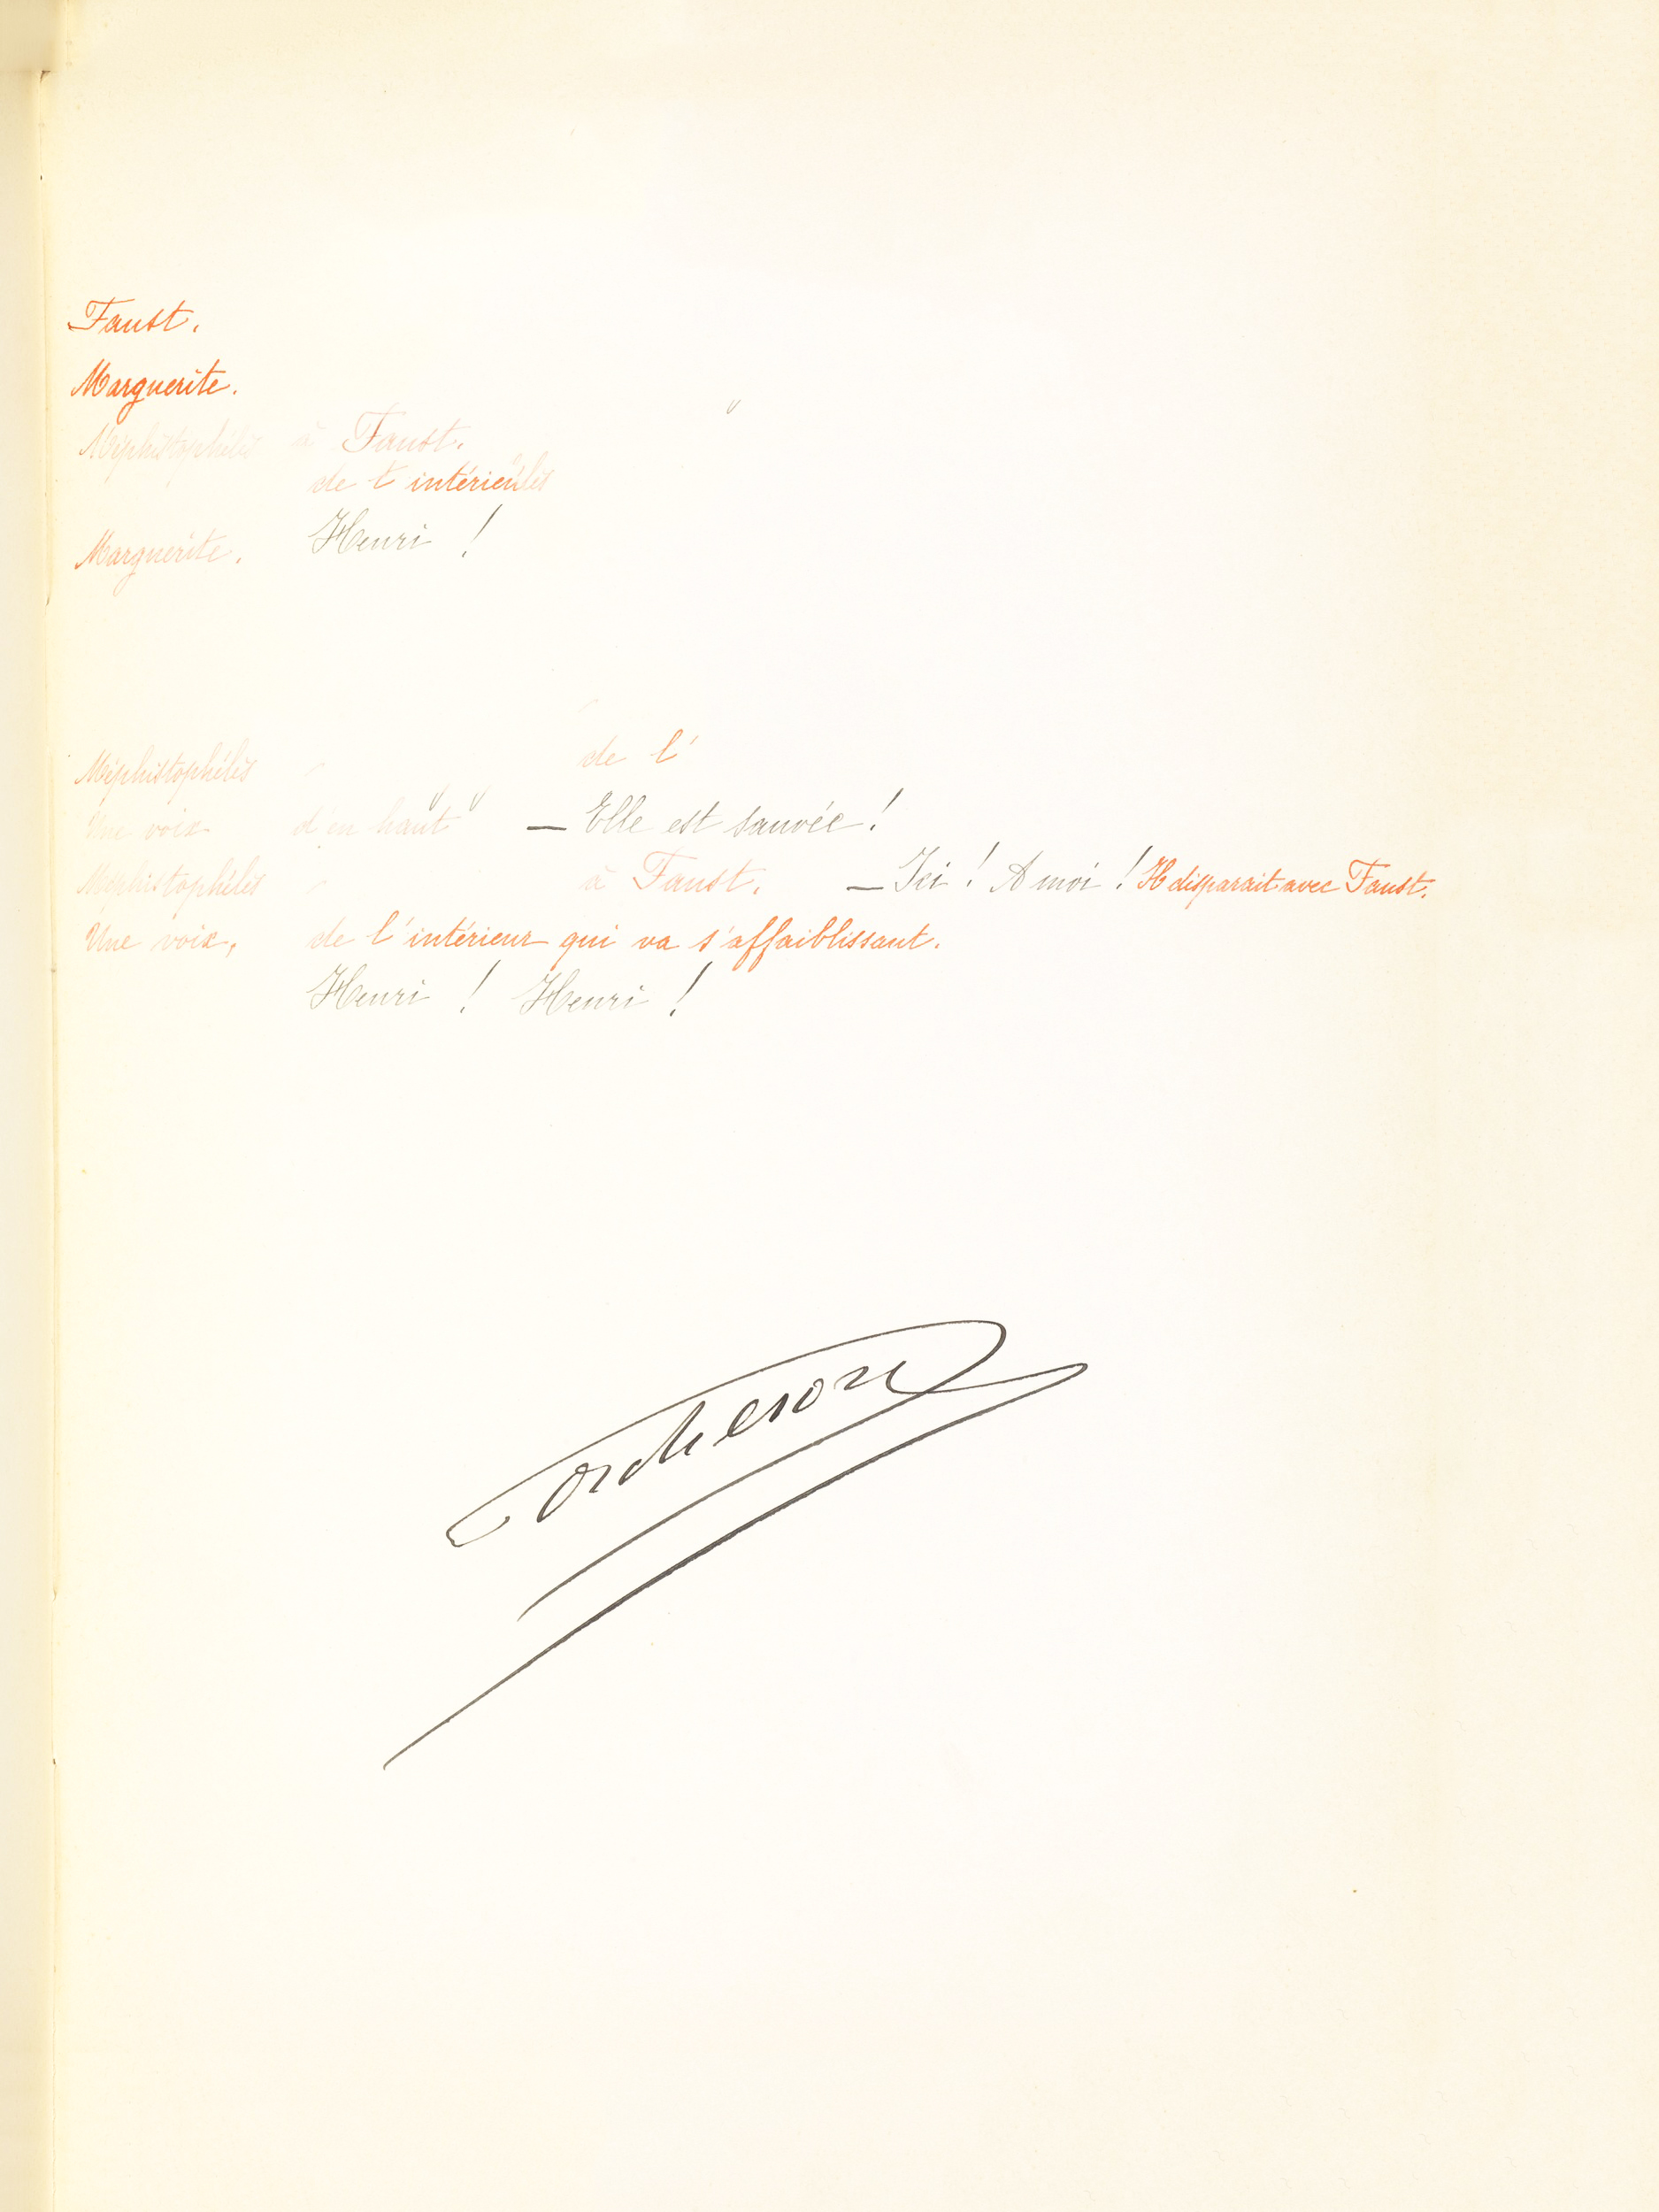 Faust.
Marguerite.
Méphistophélès à Faust.
de l'intérieur
Marguerite. Henri !
Méphistophélès de l'
Une voix d'en haut — Elle est sauvée !
Méphistophélès à Faust. — Ici ! A moi ! Il disparait avec Faust.
Une voix, de l'intérieur qui va s'affaiblissant.
Henri ! Henri !